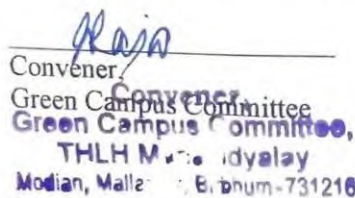 Convener,
Green Campus Committee
Convener,
Green Campus Committee,
THLH
Modian, Birbhum-731216